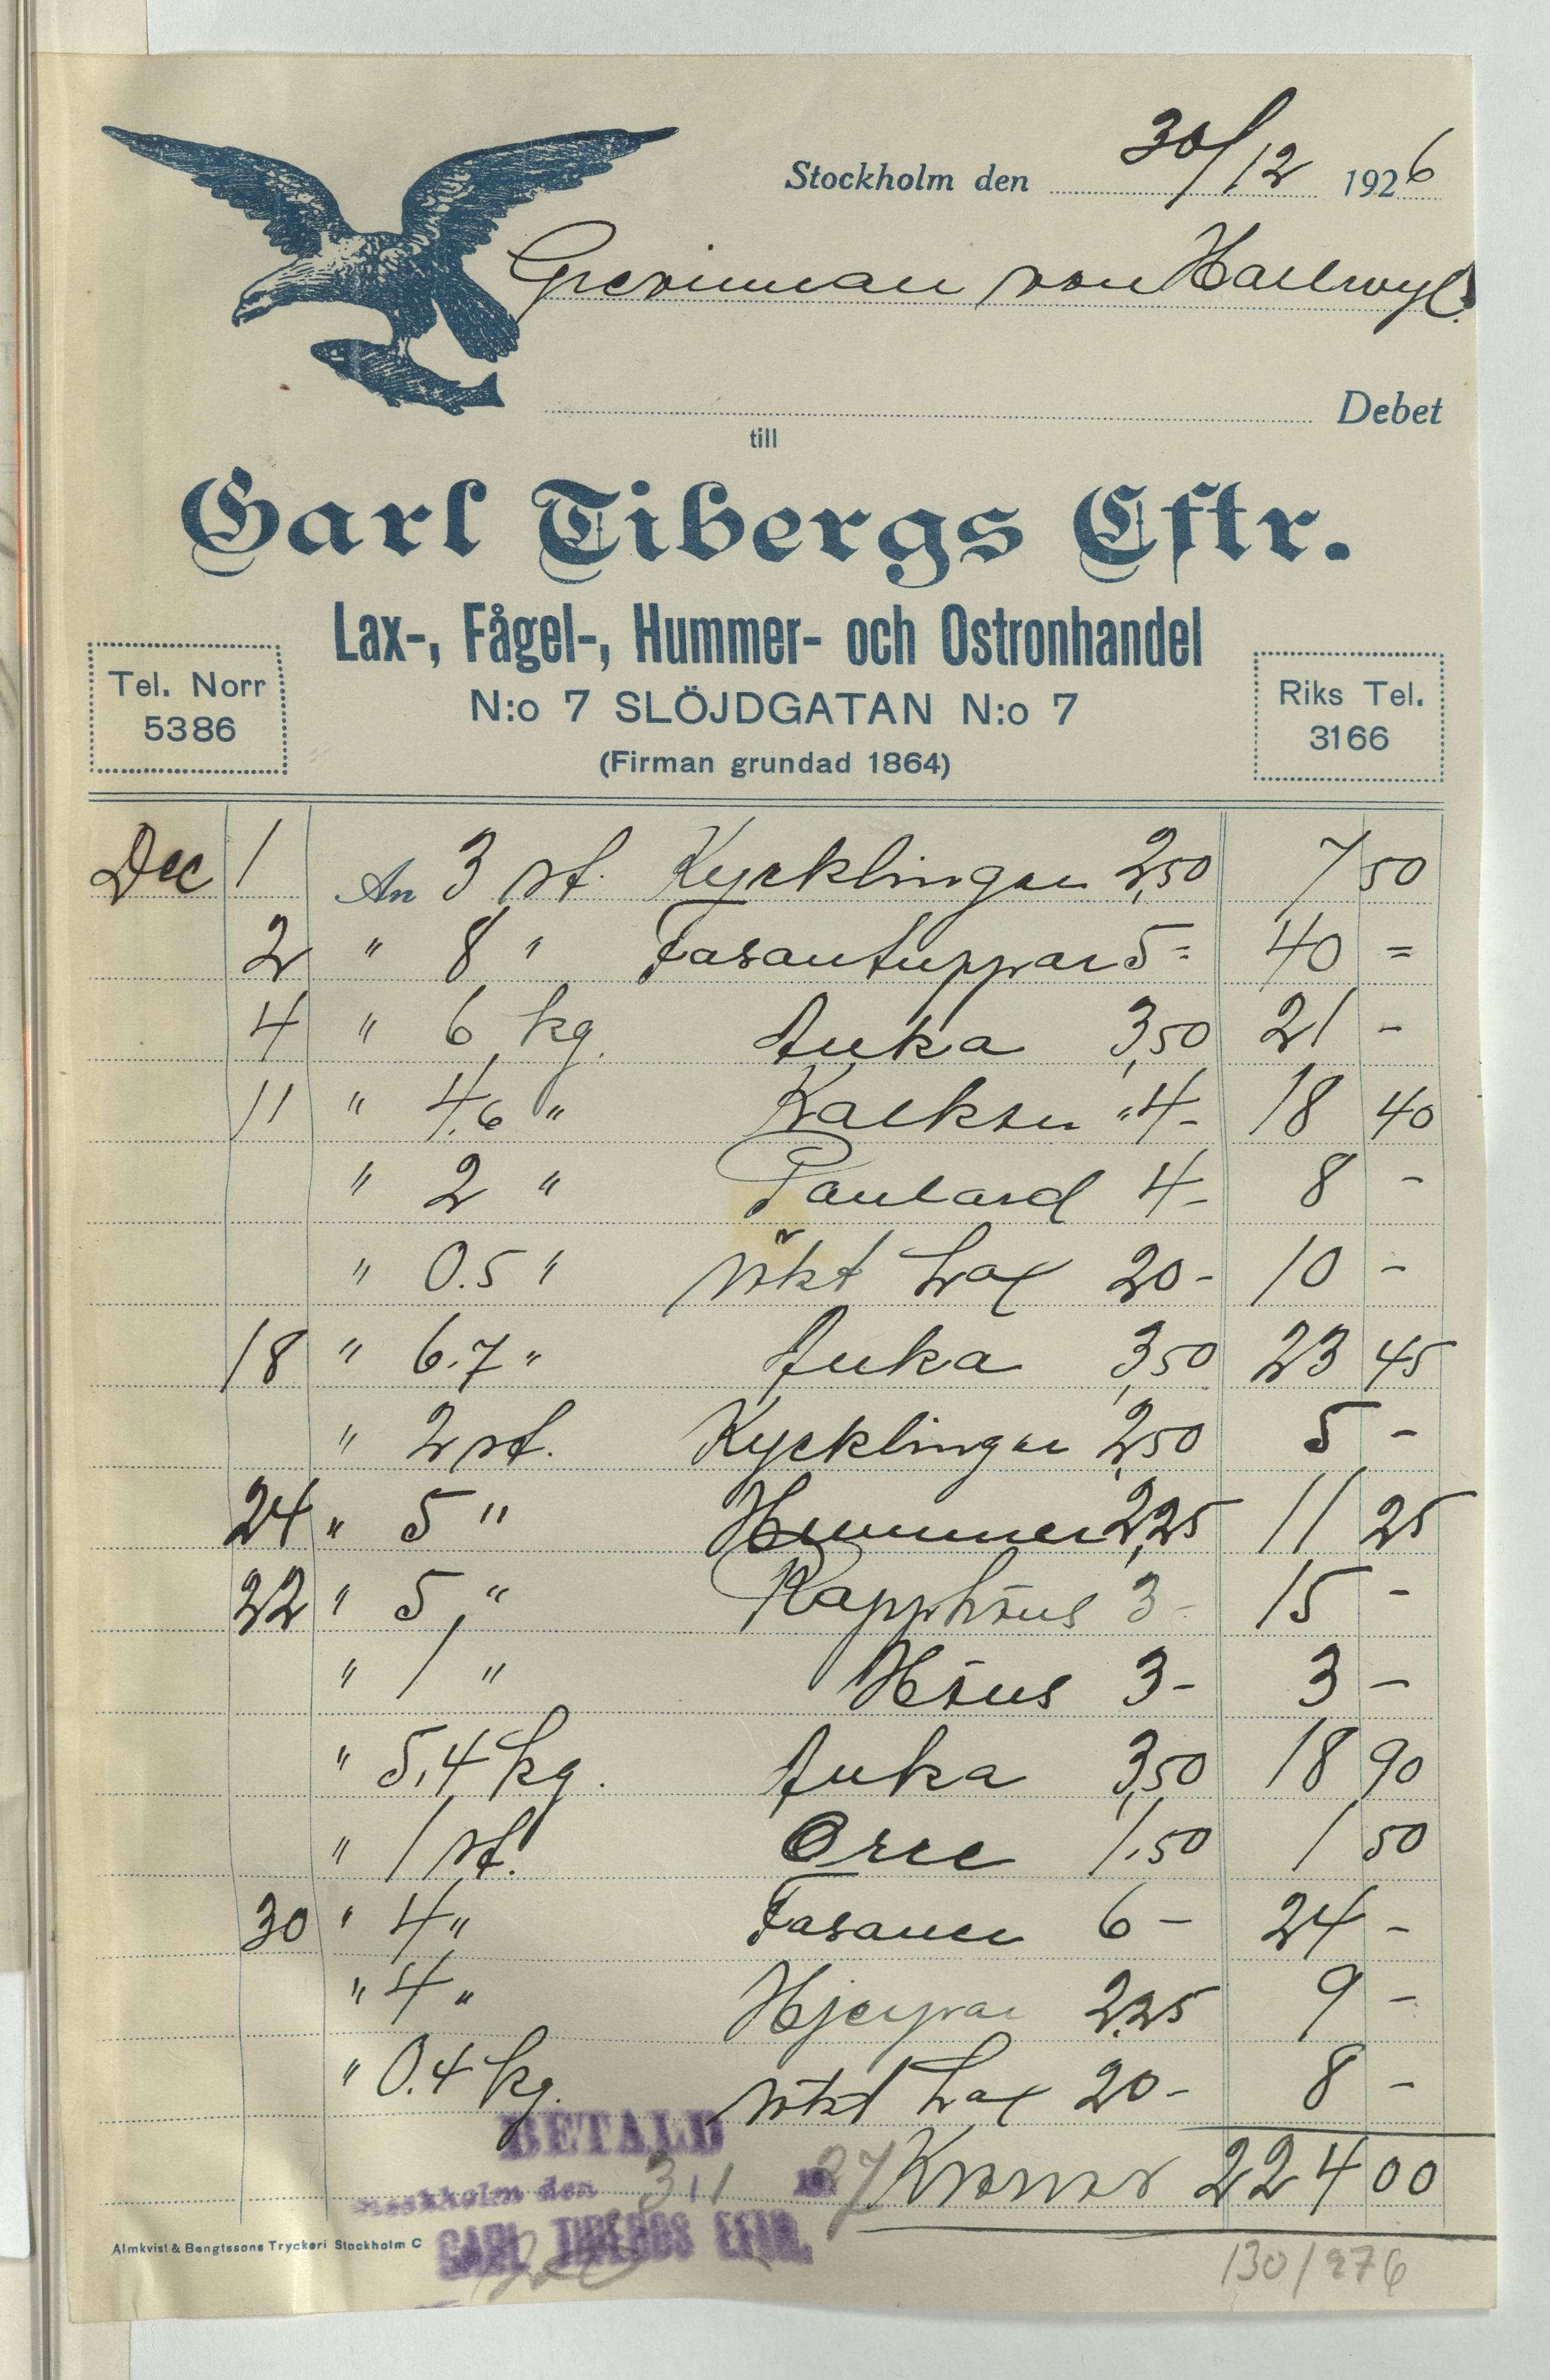 Stockholm den 30/12 1926
Grevinnan von Hallwyl.
Debet
till
Carl Tibergs Eftr.
Lax-, Fågel-, Hummer- och Ostronhandel
Tel. Norr 5386
N:o 7 SLÖJDGATAN N:o 7
Riks Tel. 3166
(Firman grundad 1864)
Dec 1 An 3 st. Kycklingar 2,50 7 50
2 " 8 " Fasantuppar 5= 40 =
4 " 6 kg. Anka 3,50 21 -
11 " 4,6 " Kalkon "4- 18 40
" 2 " Poulard 4- 8 -
" 0.5 " rökt Lax 20- 10 -
18 " 6.7 " Anka 3,50 23 45
" 2 st. Kycklingar 2,50 5 -
24 " 5 " Hummer 2,25 11 25
22 " 5 " Rapphöns 3- 15 -
" 1 " Höns 3- 3 -
" 5,4 kg. Anka 3,50 18 90
" 1 st. Orre 1.50 1 50
30 " 4 " Fasaner 6- 24 -
" 4 " Hjerpar 2,25 9 -
" 0.4 kg. rökt Lax 20- 8 -
Kronor 224 00
BETALD
Stockholm den 3/1 1927
CARL TIBERGS EFTR.
Almkvist & Bengtssons Tryckeri Stockholm C
130/276